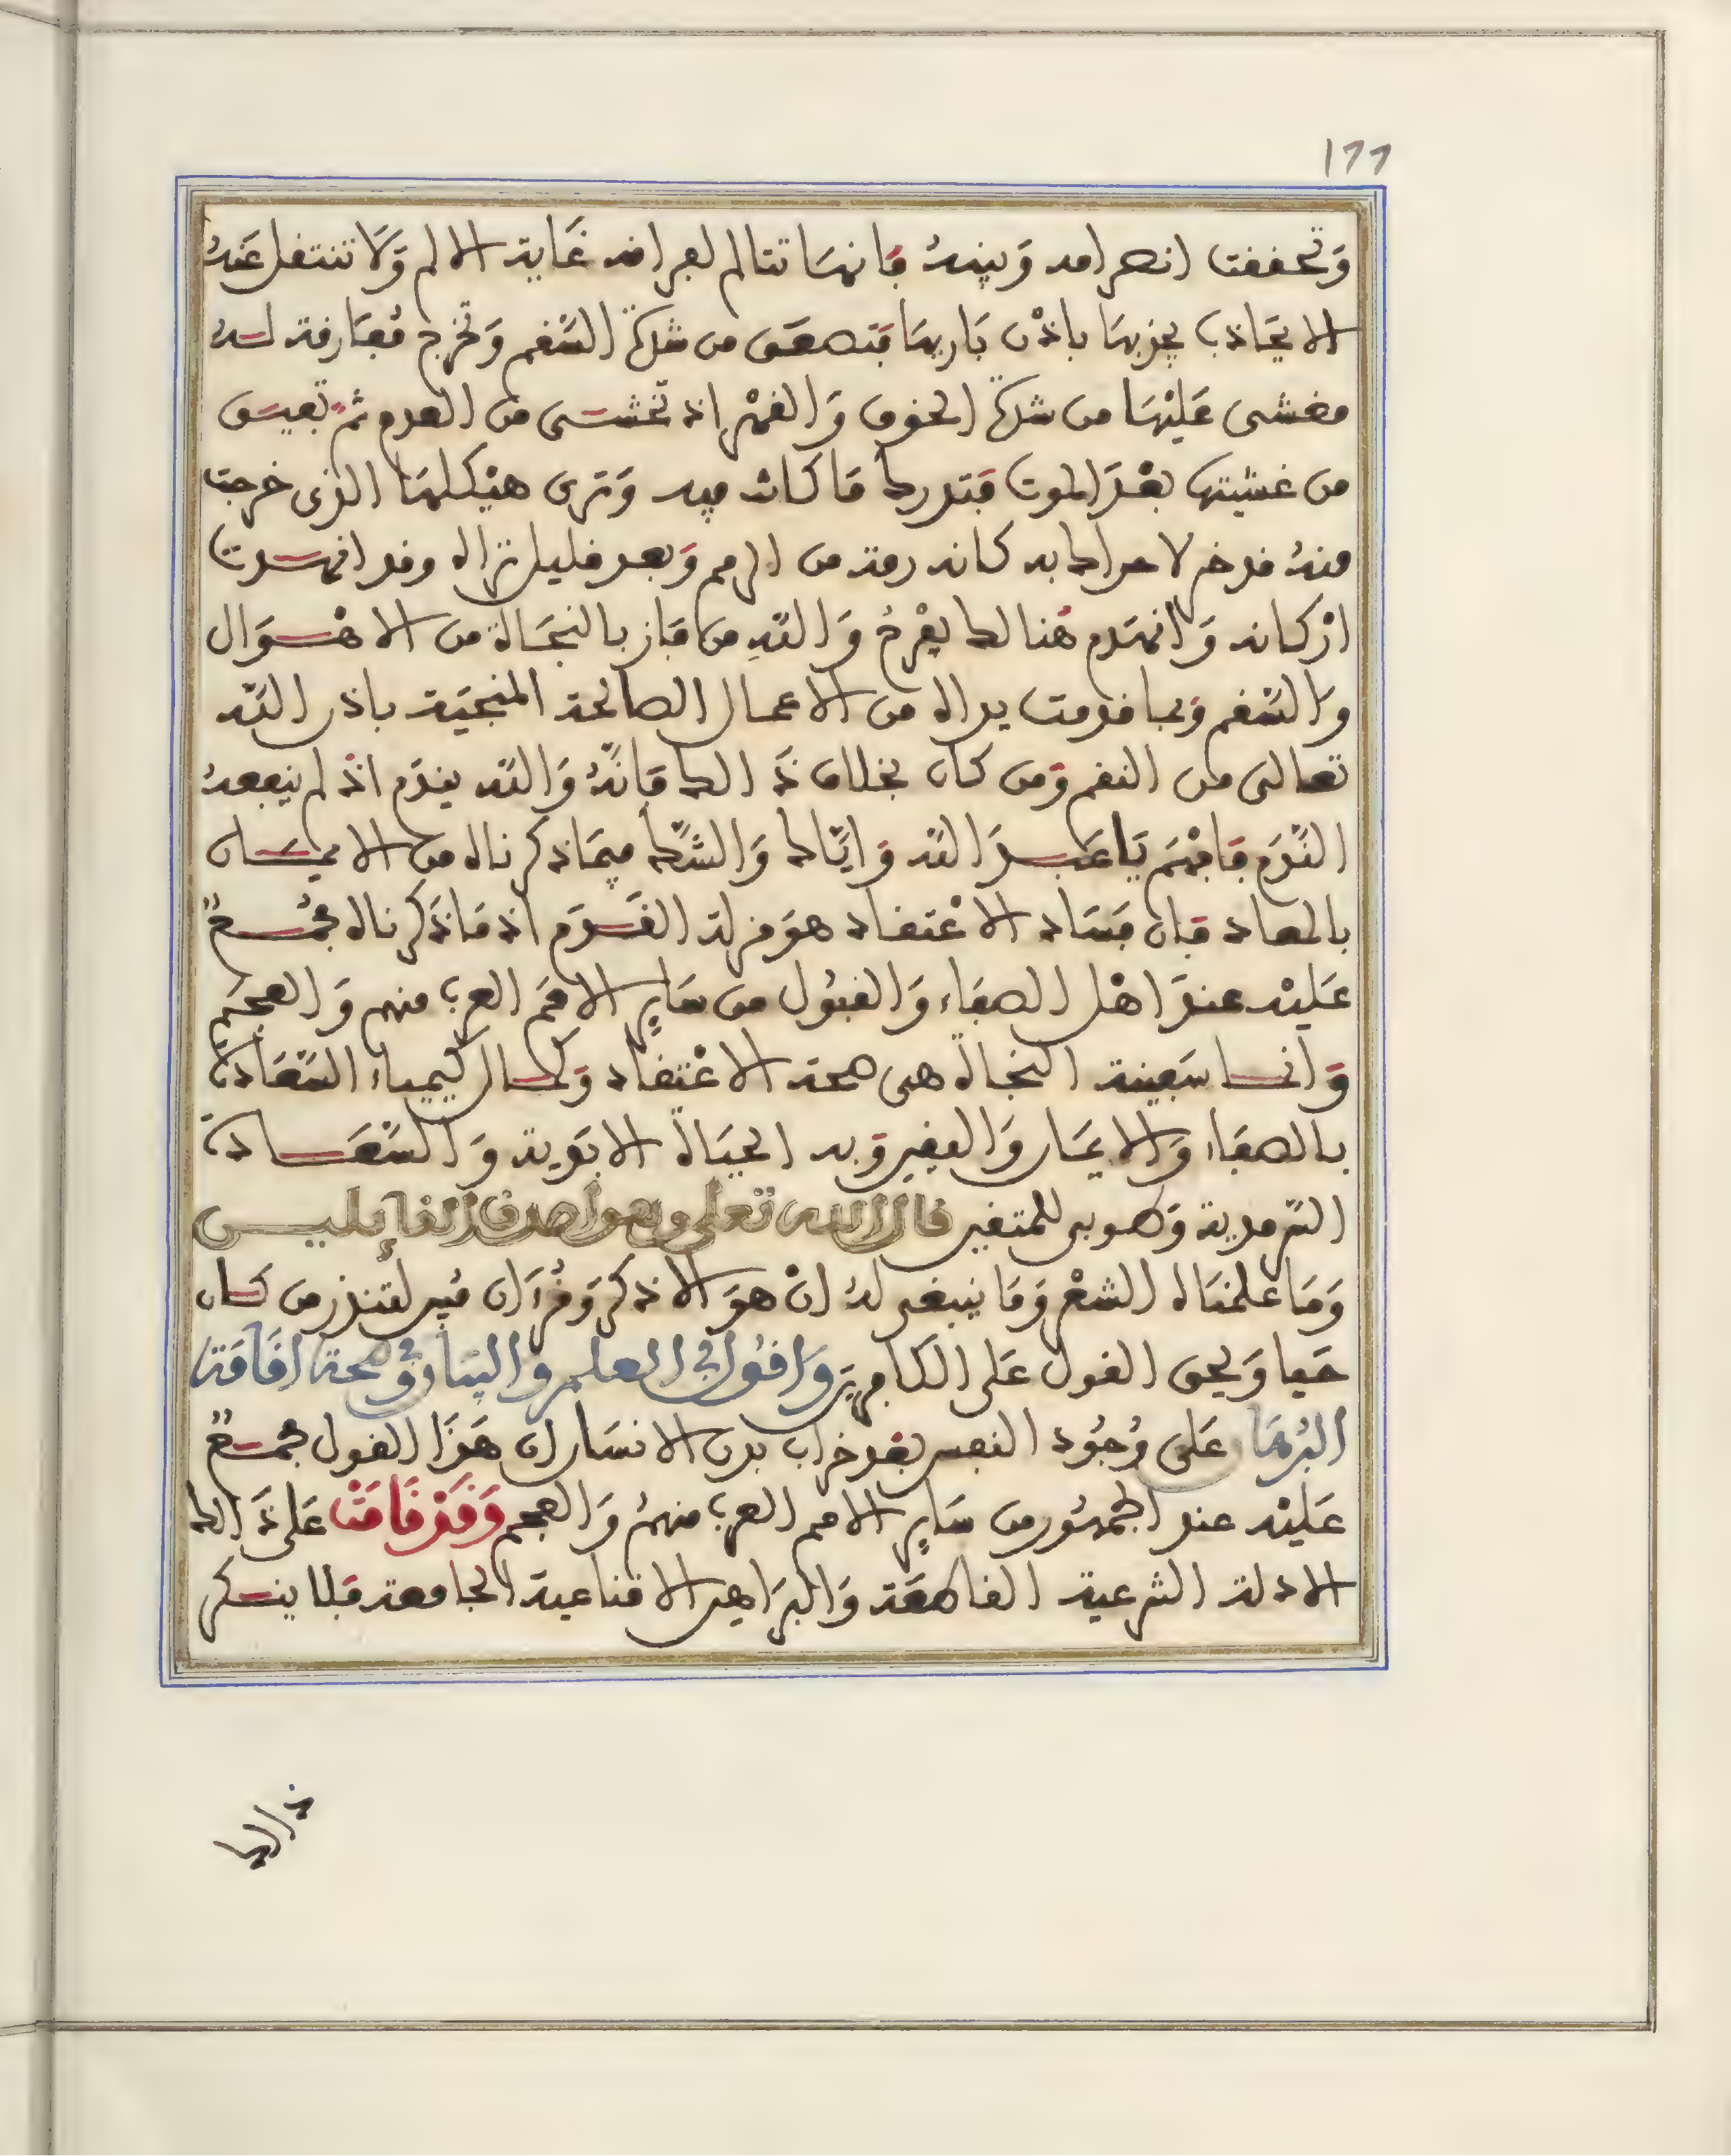 ١٦٦
وَتحققت انصرامه وَبينهُ فانهَا تتالم لفراقه غَاية الالم وَلَا تنتقل عَنهُ
الا بجَاذب يجذبهَا باذْن بَاريهَا فَتصعَق من شدة السَّقم وَتخرج مُفَارقة لـه
مغشى عَليْهَا من شدة الخوف وَالقهْر اذ تخشى من العدم ثمَّ تفيق
من غشيتها بعْدَ الموت فَتدرك مَا كانت فيه وَترى هيْكلهَا الذى خرجت
منهُ قد خر لا حراك به كانه رمة من الرمم وَبعد قليل تراه وقد انهدت
ارْكانه وَانهَدم هُنالك يفْرحُ وَاللّهِ من فَاز بالنجَاة من الاهْوَال
وَالسَّقم وَبما قدمت يداه من الاعمال الصالحة المنجيَة باذن اللّه
تعالى من النقم وَمن كان بخلاف ذَالك فَانَّهُ وَاللّه يندَم اذْ لم ينفعهُ
النَّدَم فَافْهَم يَا عَبدَ اللّه وَايَّاك وَالشَّك فيمَا ذكرناه من الايمـان
بالمعاد فان فَسَاد الاعْتقاد هوَ مزلة القَدَم اذ مَا ذَكرناه مجْمـع
عَليْه عندَ اهْل الصفَاء وَالقبُول من سَاير الامَم العرب منهم وَالعجَم
وَانـما سَفينة النجاة هى صحة الاعْتقاد وَكمـال كيْمياء السَّعَادة
بالصفَاء وَالايمَان وَاليقين وَبه الحيَاة الابَدية وَالسَّعَـادة
السّرمدية وَطوبى للمتقين قال الله تعلى وهو اصدق القائليـن
وَمَا علمنَاه الشعْر وَمَا ينبغى لهُ انْ هوَ الا ذكر وَقُرءَان مُبين لتنذر من كـان
حَيا وَيحق القول عَلى الكافرينَ وَاقُول فى العلم والبيَان وَصحة اقَامَة
البُرهَان عَلى وُجُود النفس بعْد خراب بدن الانسَان ان هَذَا القول مجمـع
عَليْه عند الجمْهُور من سَاير الامم العرب منهمُ وَالعجم وَقَدْ قَامَتْ عَلى ذَالك
الادلة الشرعية القاطعَة وَالبرَاهين الاقناعية الجامعة فلا ينـكر
ذالك